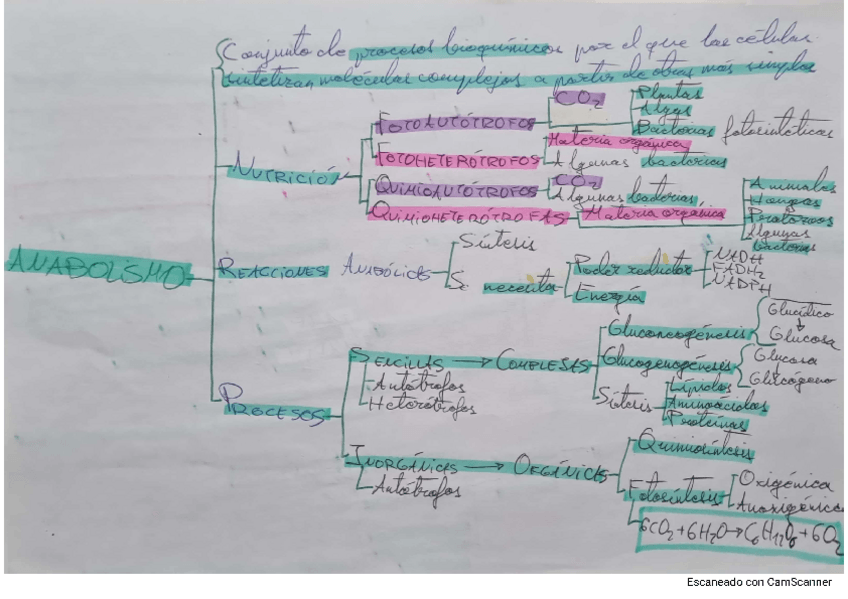 Conjunto de procesos bioquímicos por el que las células
sintetizan moléculas complejas a partir de otras más simples
CO₂
Plantas
Algas
FOTOAUTÓTROFOS
Bacterias fotosintéticas
Materia orgánica
FOTOHETERÓTROFOS
Algunas bacterias
NUTRICIÓN
CO₂
QUIMIOAUTÓTROFOS
Algunas bacterias
Animales
Hongos
QUIMIOHETERÓTROFAS
Materia orgánica
Protozoos
Algunas
bacterias
ANABOLISMO
REACCIONES ANABÓLICAS
Síntesis
Se necesita
Poder reductor
NADH
FADH₂
NADPH
Energía
Gluconeogénesis
Glucosa
SENCILLAS → COMPLEJAS
Glucogenogénesis
Glucosa
Glucógeno
Autótrofos
Heterótrofos
Síntesis
Lípidos
Aminoácidos
Proteínas
PROCESOS
Quimiosíntesis
INORGÁNICAS → ORGÁNICAS
Autótrofos
Fotosíntesis
Oxigénica
Anoxigénica
6CO₂+6H₂O→C₆H₁₂O₆+6O₂
Escaneado con CamScanner